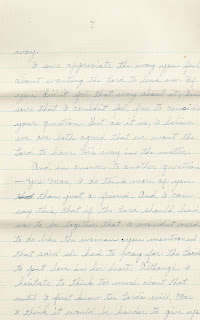 7
way.
I sure appreciate the way you feel
about wanting the Lord to lead us. If
you didn't feel that way about it, I'm
sure that I couldn't feel free to
your question. But as it is I believe
we are both agreed that we want the
Lord to have His way in the matter.
And in answer to another question
— Yes Max, I do think more of you
than just a friend. And I can
say this, that if the Lord should lead
us to be together that I wouldn't need
to do like the woman you mentioned
that said she had to pray for the Lord
to put love in her heart. Although I
hesitate to think too much about that
until I first know the Lord's will. For
I think it would be harder to give up